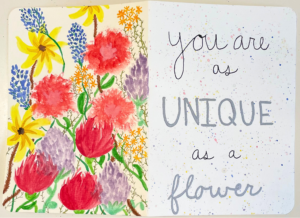 you are
as
UNIQUE
as a
flower